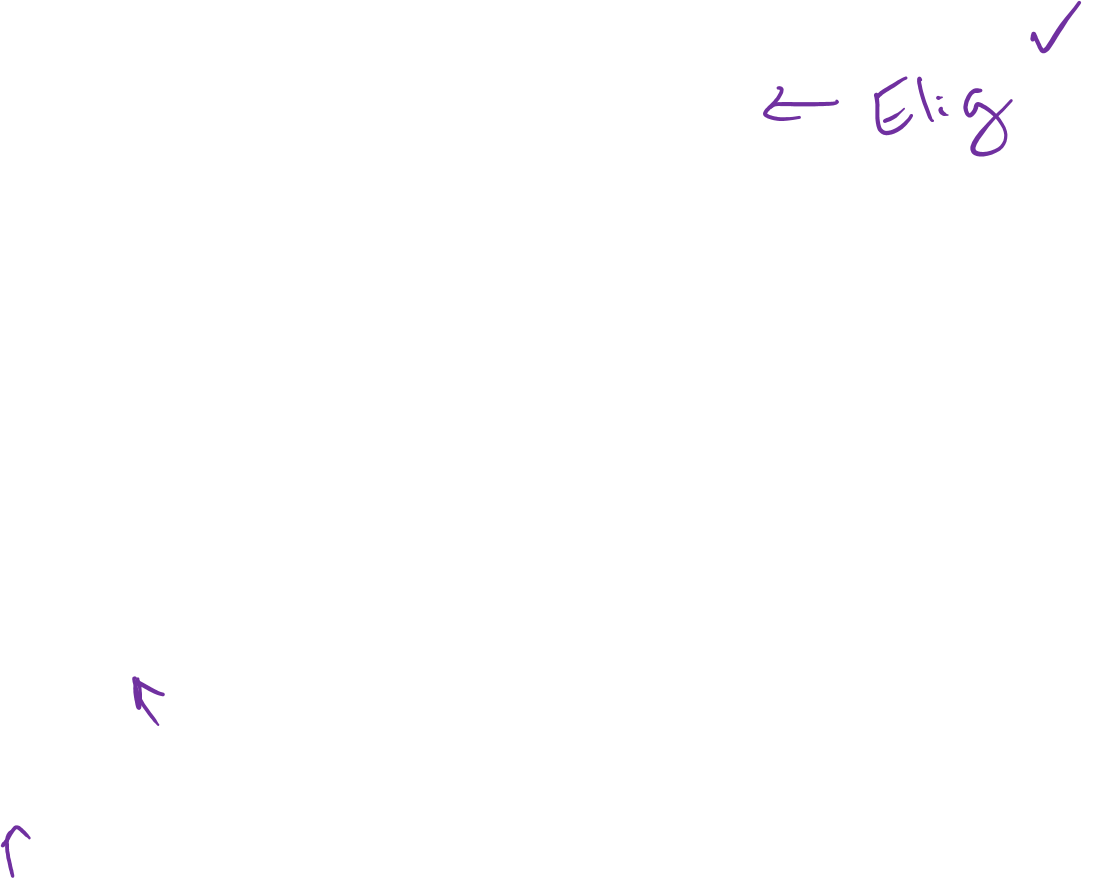 ✓
← Elig